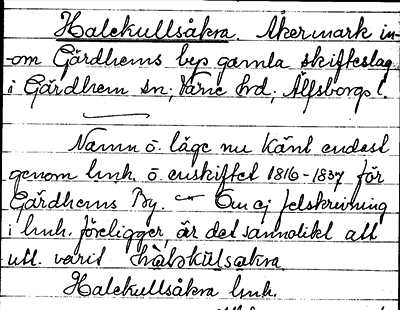 Halekullsåkra. Åkermark in-
om Gärdhems bys gamla skifteslag
i Gärdhem sn, Väne hd, Älfsborgs l.
Namn o. läge nu känt endast
genom lmh. o. enskiftet 1816-1837 för
Gärdhems By. — Om ej felskrivning
i lmh. föreligger, är det sannolikt att
utt. varit
Halekullsåkra lmh.